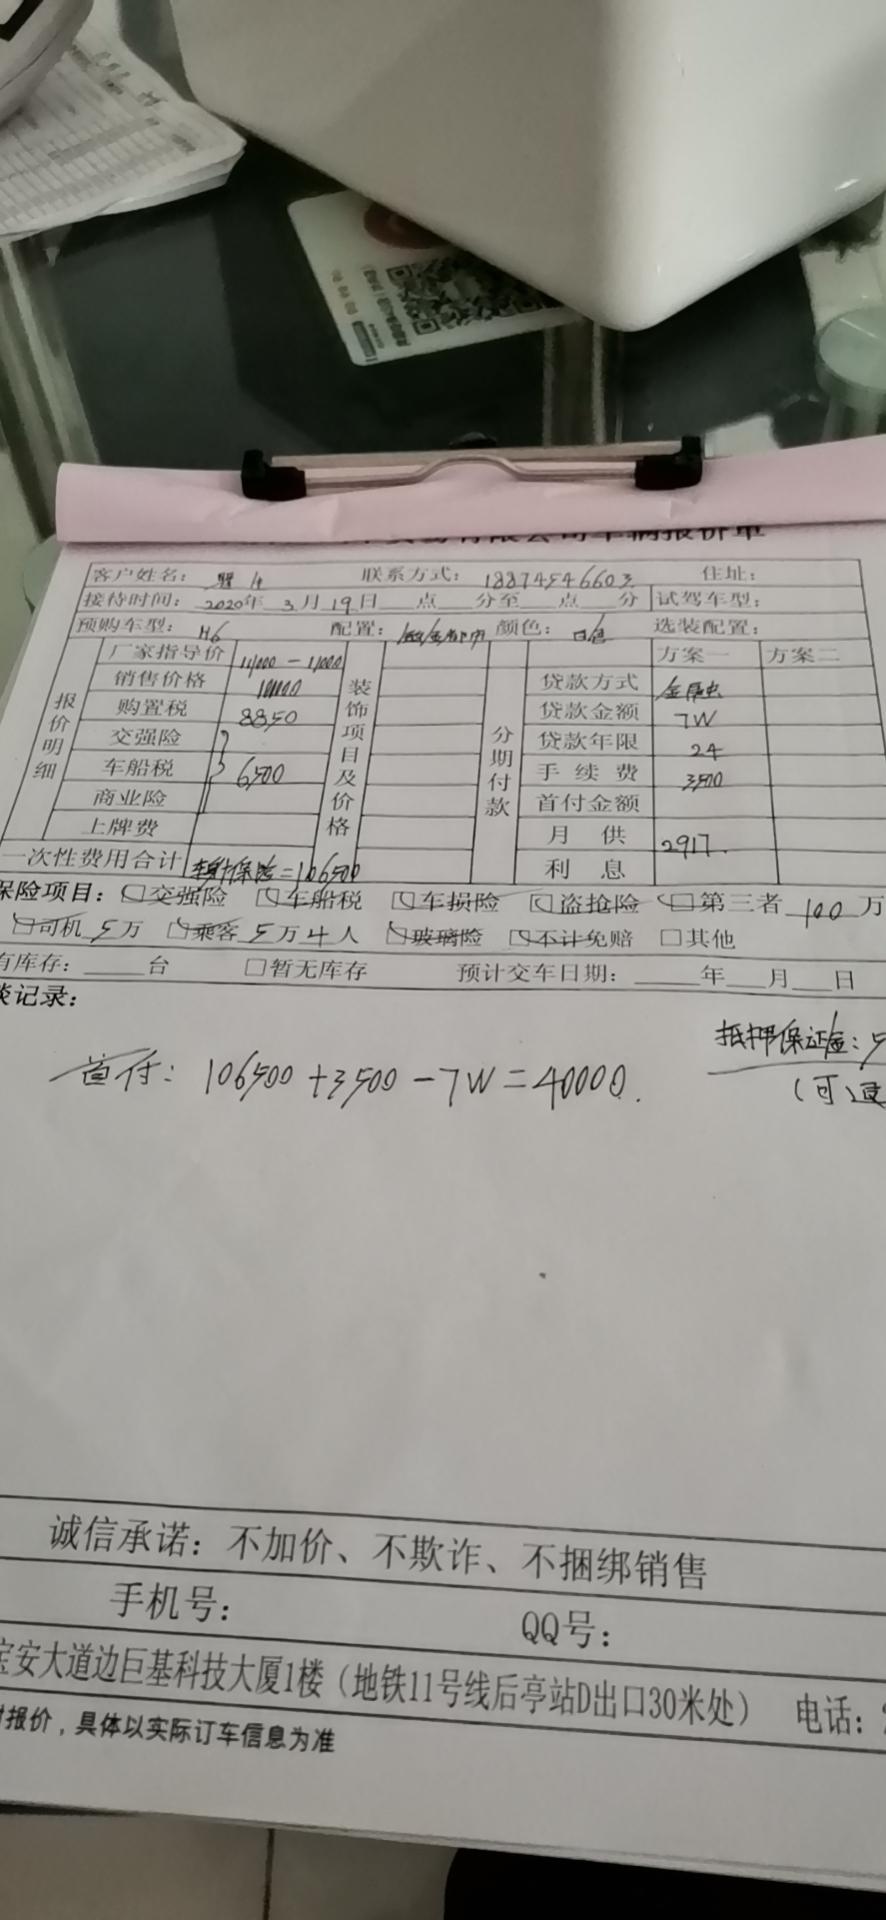 有限公司车辆报价单
客户姓名： 联系方式：18874546603 住址：
接待时间：2020年3月19日 点 分至 点 分 试驾车型：
预购车型：H6 配置： 颜色：白色 选装配置：
报价明细 装饰项目及价格 分期付款 方案一 方案二
厂家指导价
销售价格 贷款方式
购置税 8850 贷款金额 7W
交强险 贷款年限 24
车船税 6500 手续费 3500
商业险 首付金额
上牌费 月供 2917.
一次性费用合计 保险=106500 利息
保险项目：交强险 车船税 车损险 盗抢险 第三者100万
司机5万 乘客5万4人 玻璃险 不计免赔 其他
有库存： 台 暂无库存 预计交车日期： 年 月 日
谈记录：
抵押保证金：5
首付：106500+3500-7W=40000.
(可退
诚信承诺：不加价、不欺诈、不捆绑销售
手机号： QQ号：
宝安大道边巨基科技大厦1楼（地铁11号线后亭站D出口30米处） 电话：
报价，具体以实际订车信息为准